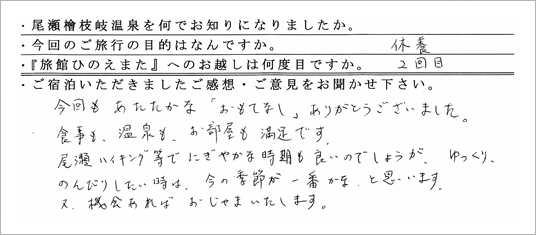 ・尾瀬檜枝岐温泉を何でお知りになりましたか。
・今回のご旅行の目的はなんですか。 休養
・『旅館ひのえまた』へのお越しは何度目ですか。 2回目
・ご宿泊いただきましたご感想・ご意見をお聞かせ下さい。
今回も あたたかな「おもてなし」ありがとうございました。
食事も、温泉も、お部屋も 満足です。
尾瀬ハイキング等でにぎやかな時期も良いのでしょうが、ゆっくり、
のんだりしたい時は、今の季節が一番かな、と思います。
又、機会あれば おじゃまいたします。